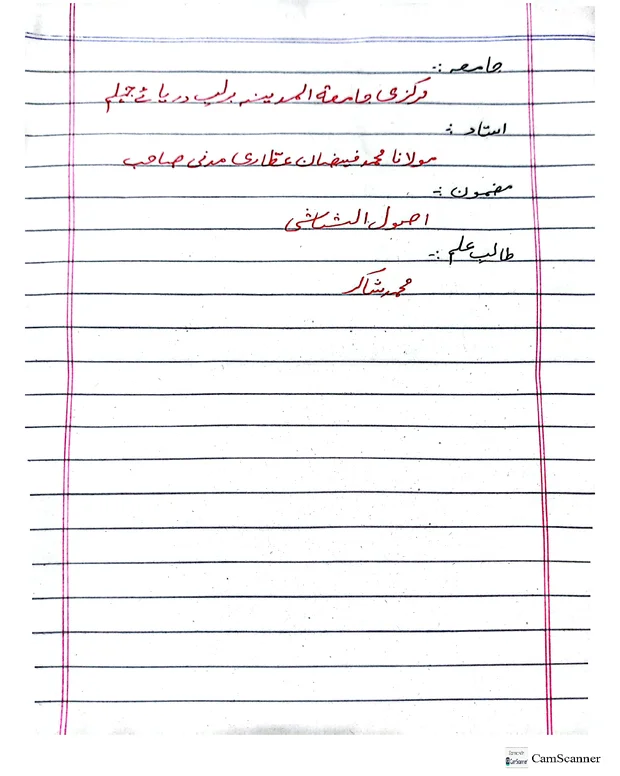 جامعہ :-
مرکزی جامعۃ المدینہ برلب دریائے جہلم
استاد :-
مولانا محمد فیضان عطاری مدنی صاحب
مضمون :-
اصول الشاشی
طالب علم :-
محمد شاکر
CamScanner